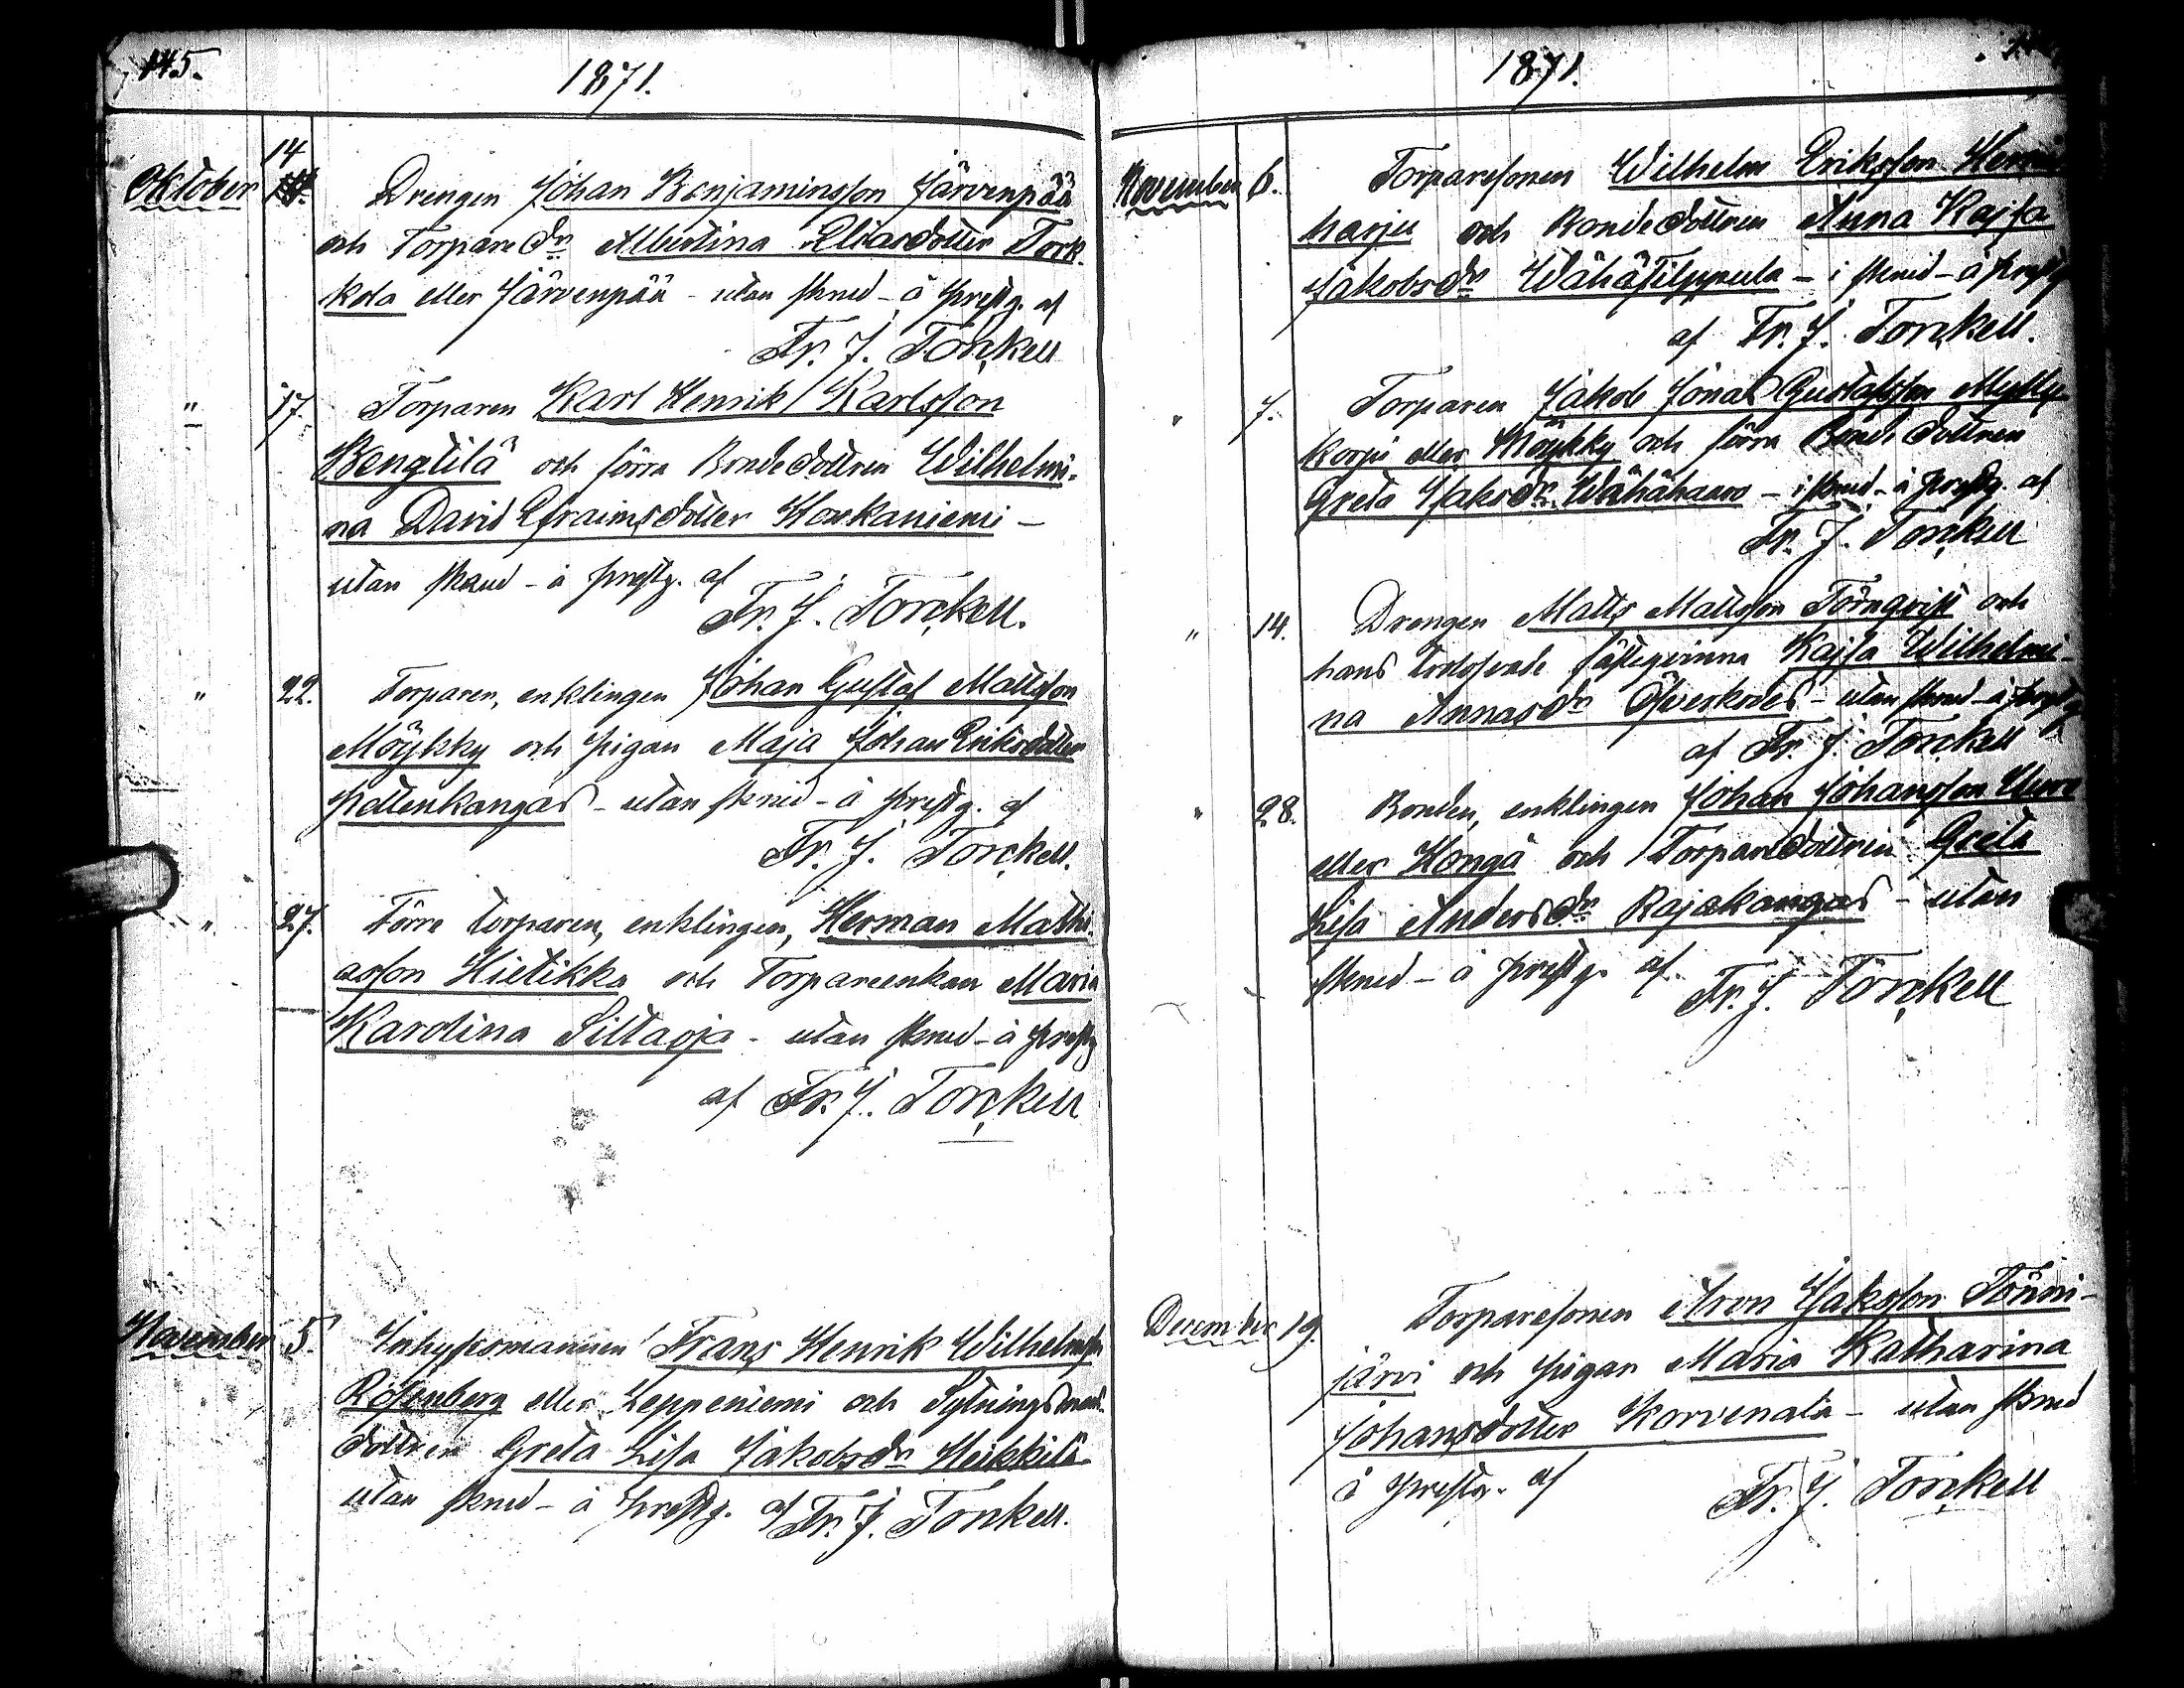 145.
1871.
Oktober 14 Drengen Johan Benjaminsson Järvenpää
och Torpare Dr Albertina Eliasdotter Tork-
kola eller Järvenpää - utan skrud - å prestg. af
Fr. J. Torckell
" 17. Torparen Karl Henrik Karlsson
Bengtilä och förra Bondedottren Wilhelmi-
na David Efraimsdotter Koskaniemi -
utan skrud - å prestg. af
Fr. J. Torckell.
" 22. Torparen, enklingen Johan Gustaf Mattsson
Möykky och pigan Maja Johan Eriksdotter
Pottenkangas - utan skrud - å prestg. af
Fr. J. Torckell.
" 27. Förre torparen, enklingen, Herman Mathi-
asson Hietikko och Torpareenkan Maria
Karolina Siltaoja - utan skrud - å prestg
af Fr. J. Torckell
November 5. Inhysesmannen Frans Henrik Wilhelmsson
Rosenberg eller Leppeniemi och Sytningsmans
dottren Greta Lisa Jakobsdr Heikkilä
utan skrud - å prestg. af Fr. J. Torckell.
1871.
November 6. Torparesonen Wilhelm Eriksson
harju och Bondedottren Anna Kajsa
Jakobsdr Wähäfilppula - i skrud - å prestg
af Fr. J. Torckell.
" 7. Torparen Jakob Jonas Gustafsson Mylly-
korpi eller Möykky och förra Bondedottren
Greta Jaksdr Wähähaaro - i skrud - å prestg. af
Fr. J. Torckell
" 14. Drengen Matts Mattsson Törnqvist och
hans trolofvade fästeqvinna Kajsa Wilhelmi-
na Annasdr Öfverkodes - utan skrud - å prestg
af Fr. J. Torckell
" 28. Bonden, enklingen Johan Johansson
eller Honga och Torparedottren Greta
Lisa Andersdr Rajakangas - utan
skrud - å prestg. af Fr. J. Torckell
December 19. Torparesonen Aron Jaksson Tönni-
järvi och pigan Maria Katharina
Johansdotter Korvenala - utan skrud
å prestg. af Fr. J. Torckell